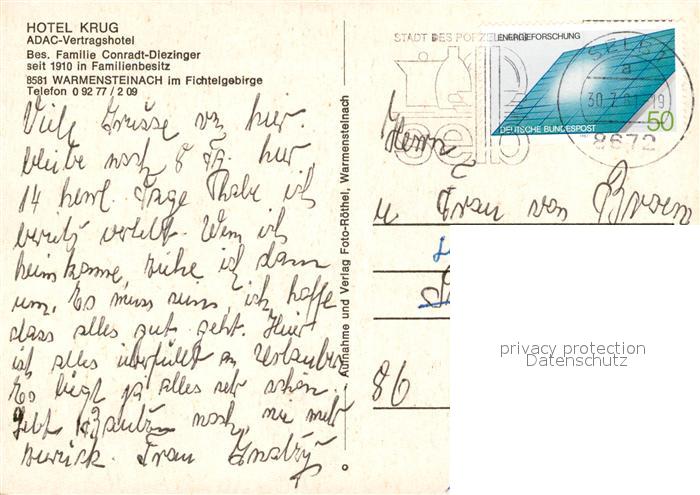 HOTEL KRUG
ADAC-Vertragshotel
Bes. Familie Conradt-Diezinger
seit 1910 in Familienbesitz
8581 WARMENSTEINACH im Fichtelgebirge
Telefon 0 92 77 / 2 09
Viele Grüsse von hier.
bleibe noch 8 Tg. hier,
14 herrl. Tage habe ich
bereits verlebt. Wenn ich
heimkomme, ziehe ich dann
um. Es muss sein, ich hoffe
dass alles gut geht. Hier
ist alles überfüllt von Urlauber
Es liegt ja alles sehr schön.
Jetzt noch, nie mehr
zurück. Frau
Aufnahme und Verlag Foto-Röthel, Warmensteinach
STADT DES PORZELLANS
SELB
a
30.7.81-19
8672
ENERGIEFORSCHUNG
DEUTSCHE BUNDESPOST
50
Herrn
u Frau von
86
privacy protection
Datenschutz